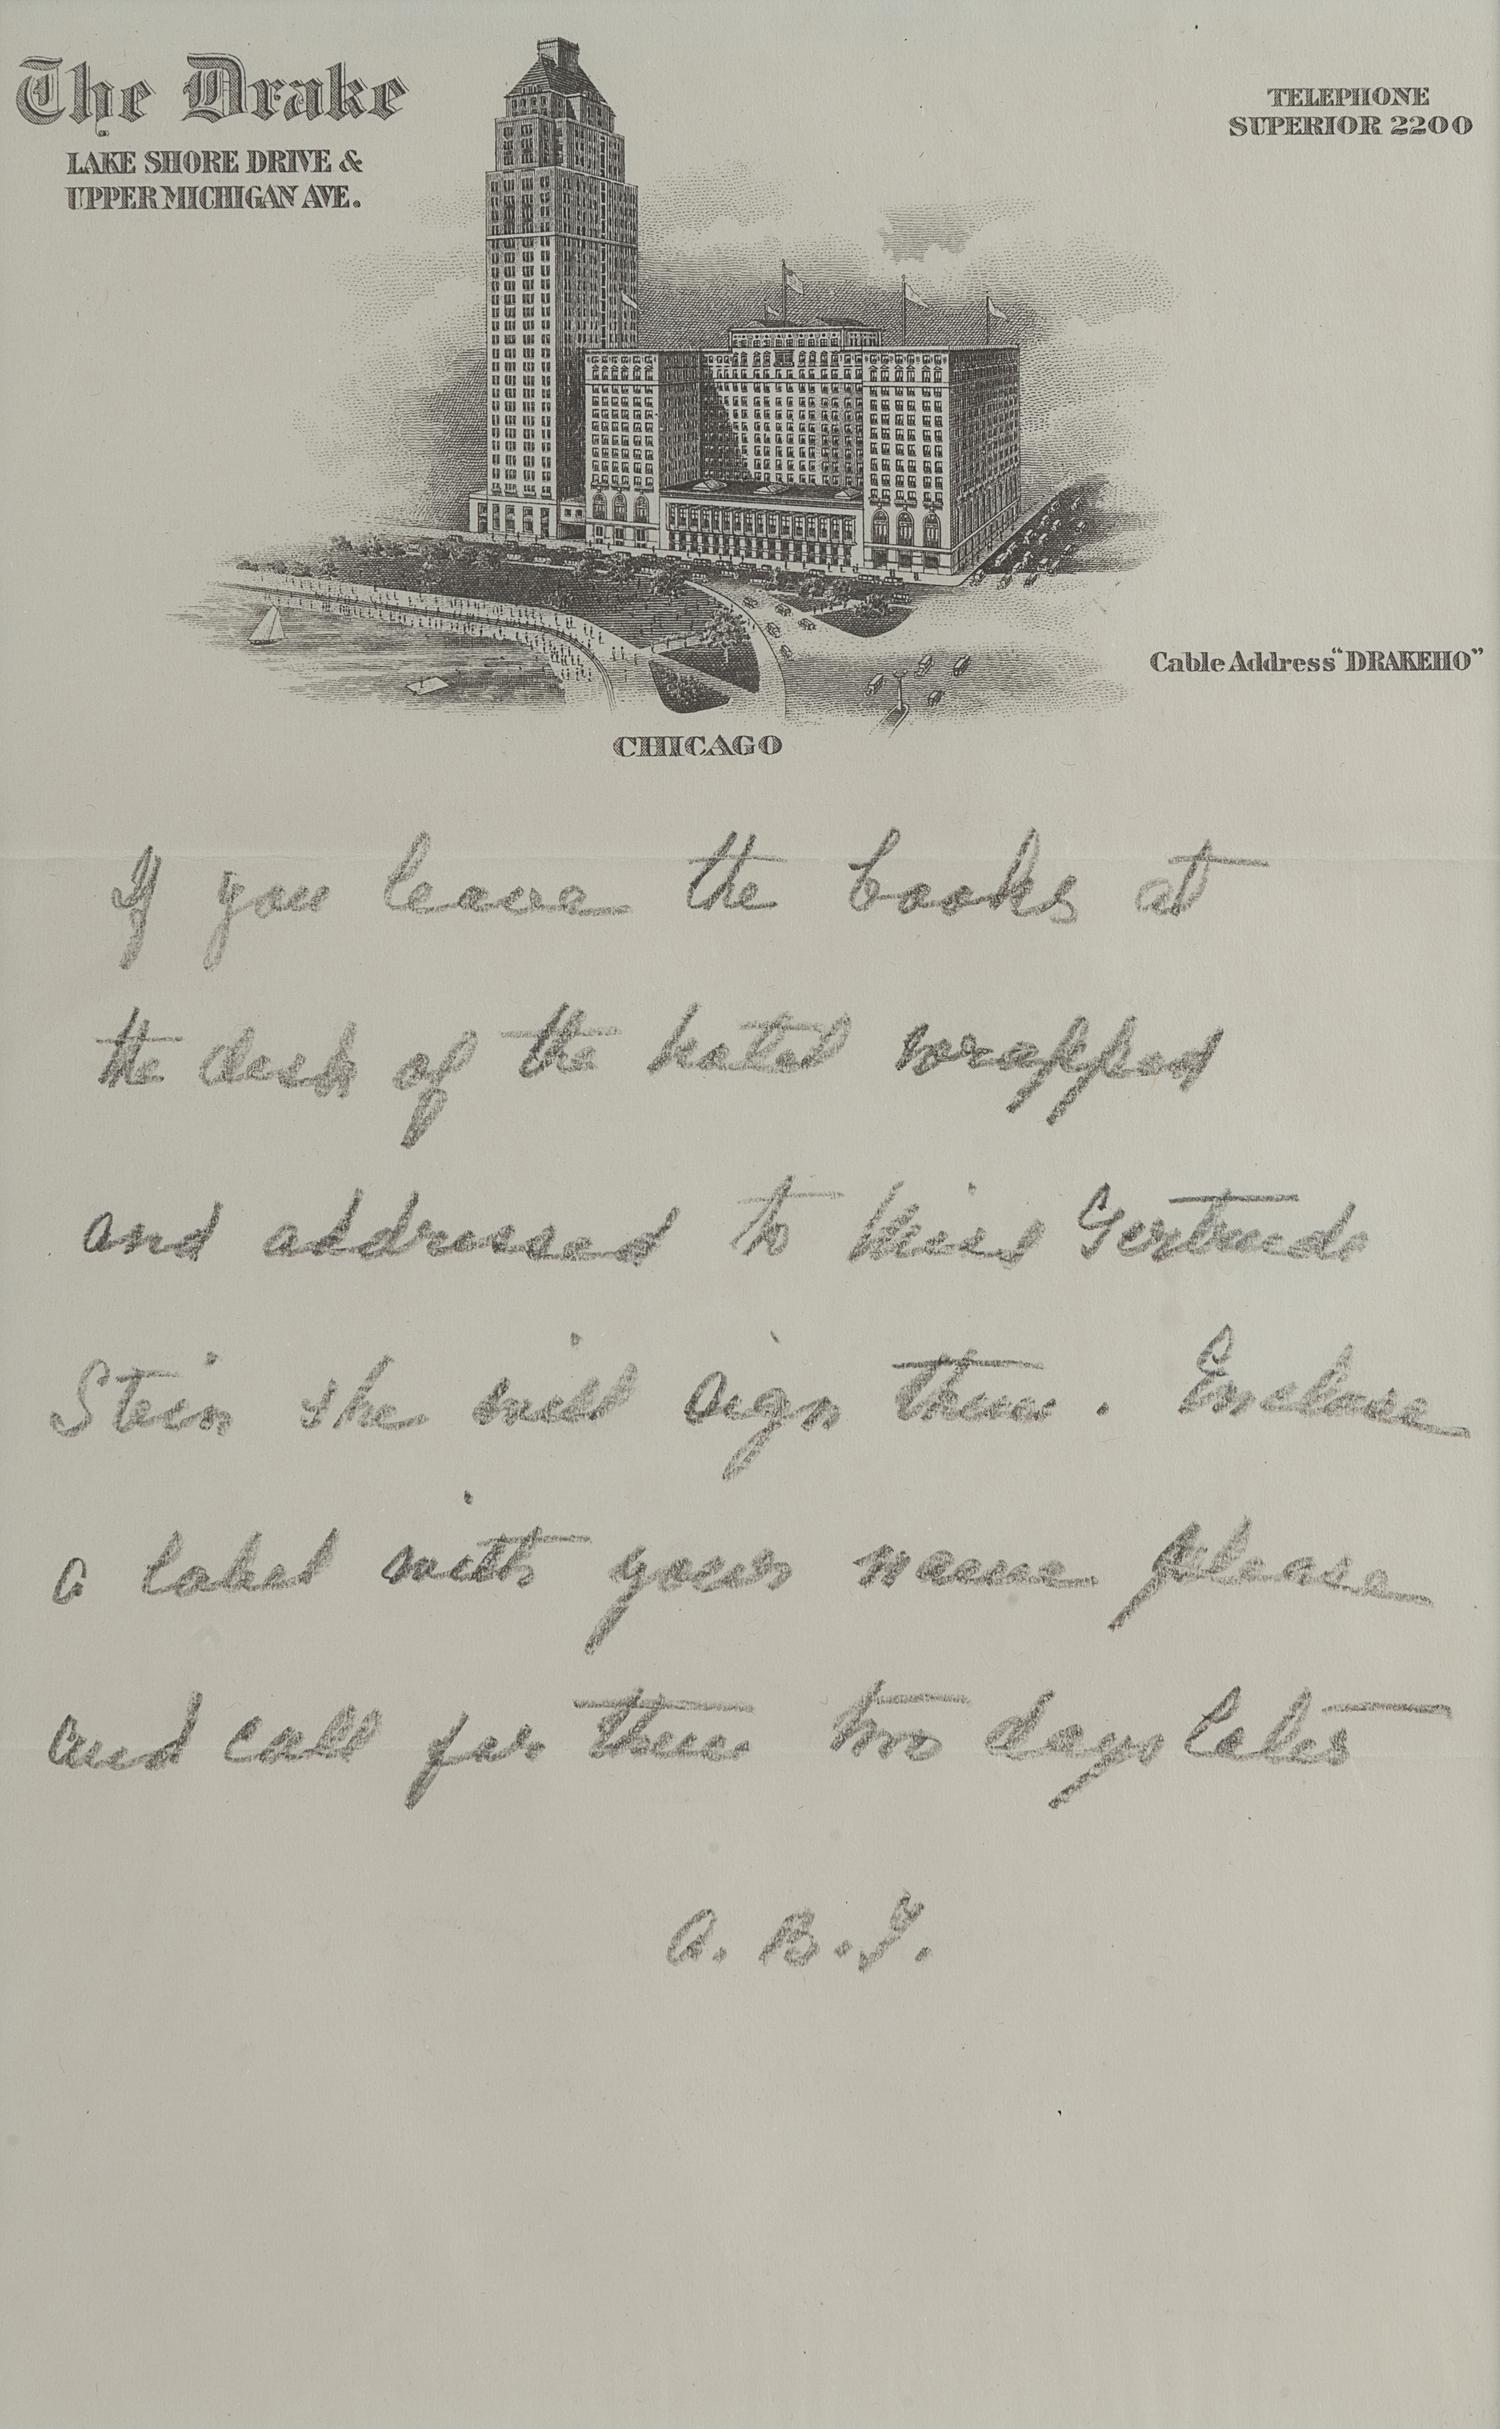 The Drake
LAKE SHORE DRIVE &
UPPER MICHIGAN AVE.
TELEPHONE
SUPERIOR 2200
Cable Address "DRAKEHO"
CHICAGO
If you leave the books at
the desk of the hotel wrapped
and addressed to Miss Gertrude
Stein she will sign them. Enclose
a label with your name please
and call for them two days later
A. B. T.